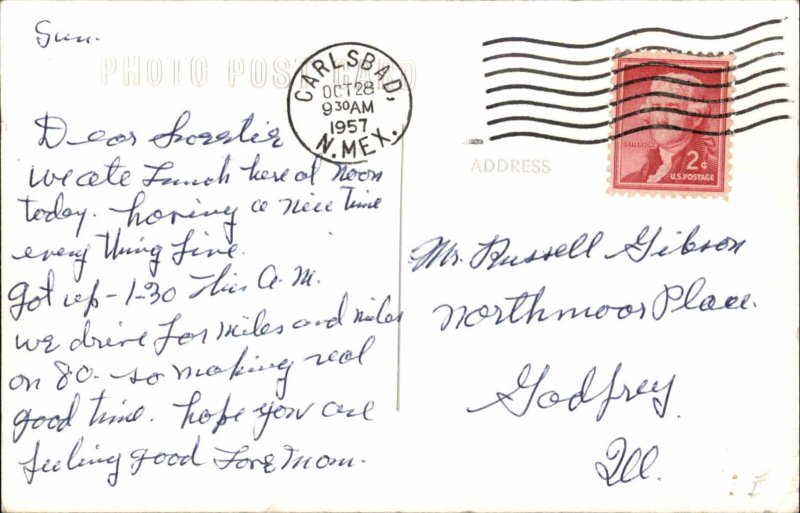 Sun.
PHOTO POST CARD
CARLSBAD,
OCT 28
9 30 AM
1957
N. MEX.
JEFFERSON
2¢
U.S. POSTAGE
ADDRESS
Dear
we ate Lunch here at Noon
today. having a nice time
every thing fine.
Got up - 1-30 This A.M.
we drive for miles and miles
on 80 - so making real
good time. hope you are
feeling good Love Mom.
Mr. Russell Gibson
Northmoor Place.
Godfrey
Ill.